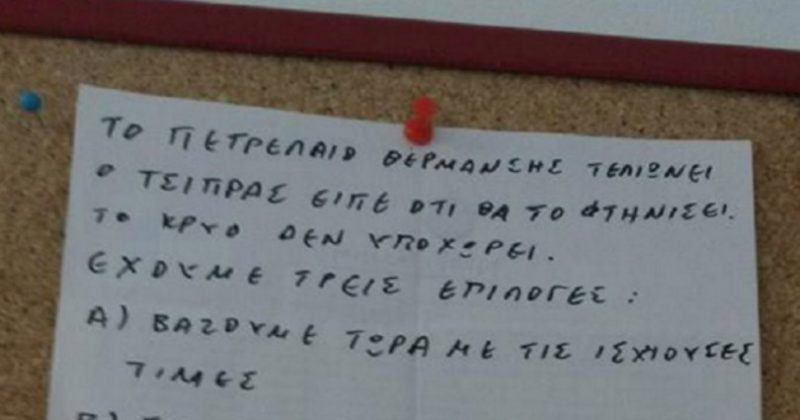 ΤΟ ΠΕΤΡΕΛΑΙΟ ΘΕΡΜΑΝΣΗΣ ΤΕΛΙΩΝΕΙ
Ο ΤΣΙΠΡΑΣ ΕΙΠΕ ΟΤΙ ΘΑ ΤΟ ΦΤΗΝΙΣΕΙ.
ΤΟ ΚΡΥΟ ΔΕΝ ΥΠΟΧΩΡΕΙ.
ΕΧΟΥΜΕ ΤΡΕΙΣ ΕΠΙΛΟΓΕΣ :
Α) ΒΑΖΟΥΜΕ ΤΩΡΑ ΜΕ ΤΙΣ ΙΣΧΙΟΥΣΕΣ
ΤΙΜΕΣ